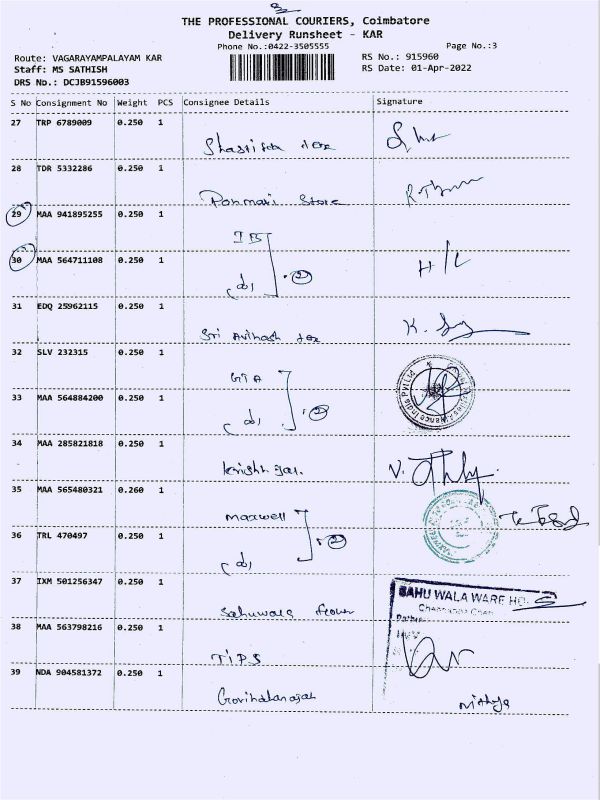 THE PROFESSIONAL COURIERS, Coimbatore
Delivery Runsheet - KAR
Phone No.:0422-3505555
Page No.:3
Route: VAGARAYAMPALAYAM KAR
RS No.: 915960
Staff: MS SATHISH
RS Date: 01-Apr-2022
DRS No.: DCJB91596003
S No Consignment No Weight PCS Consignee Details Signature
27 TRP 6789009 0.250 1
28 TDR 5332286 0.250 1
Ponmari Store
29 MAA 941895255 0.250 1
IB
30 MAA 564711108 0.250 1
2
H/L
31 EDQ 25962115 0.250 1
Sri Avinash tex
32 SLV 232315 0.250 1
33 MAA 564884200 0.250 1
2
34 MAA 285821818 0.250 1
35 MAA 565480321 0.260 1
Maxwell
36 TRL 470497 0.250 1
2
37 IXM 501256347 0.250 1
SAHU WALA WARE
38 MAA 563798216 0.250 1
TIPS
39 NDA 904581372 0.250 1
Nithya